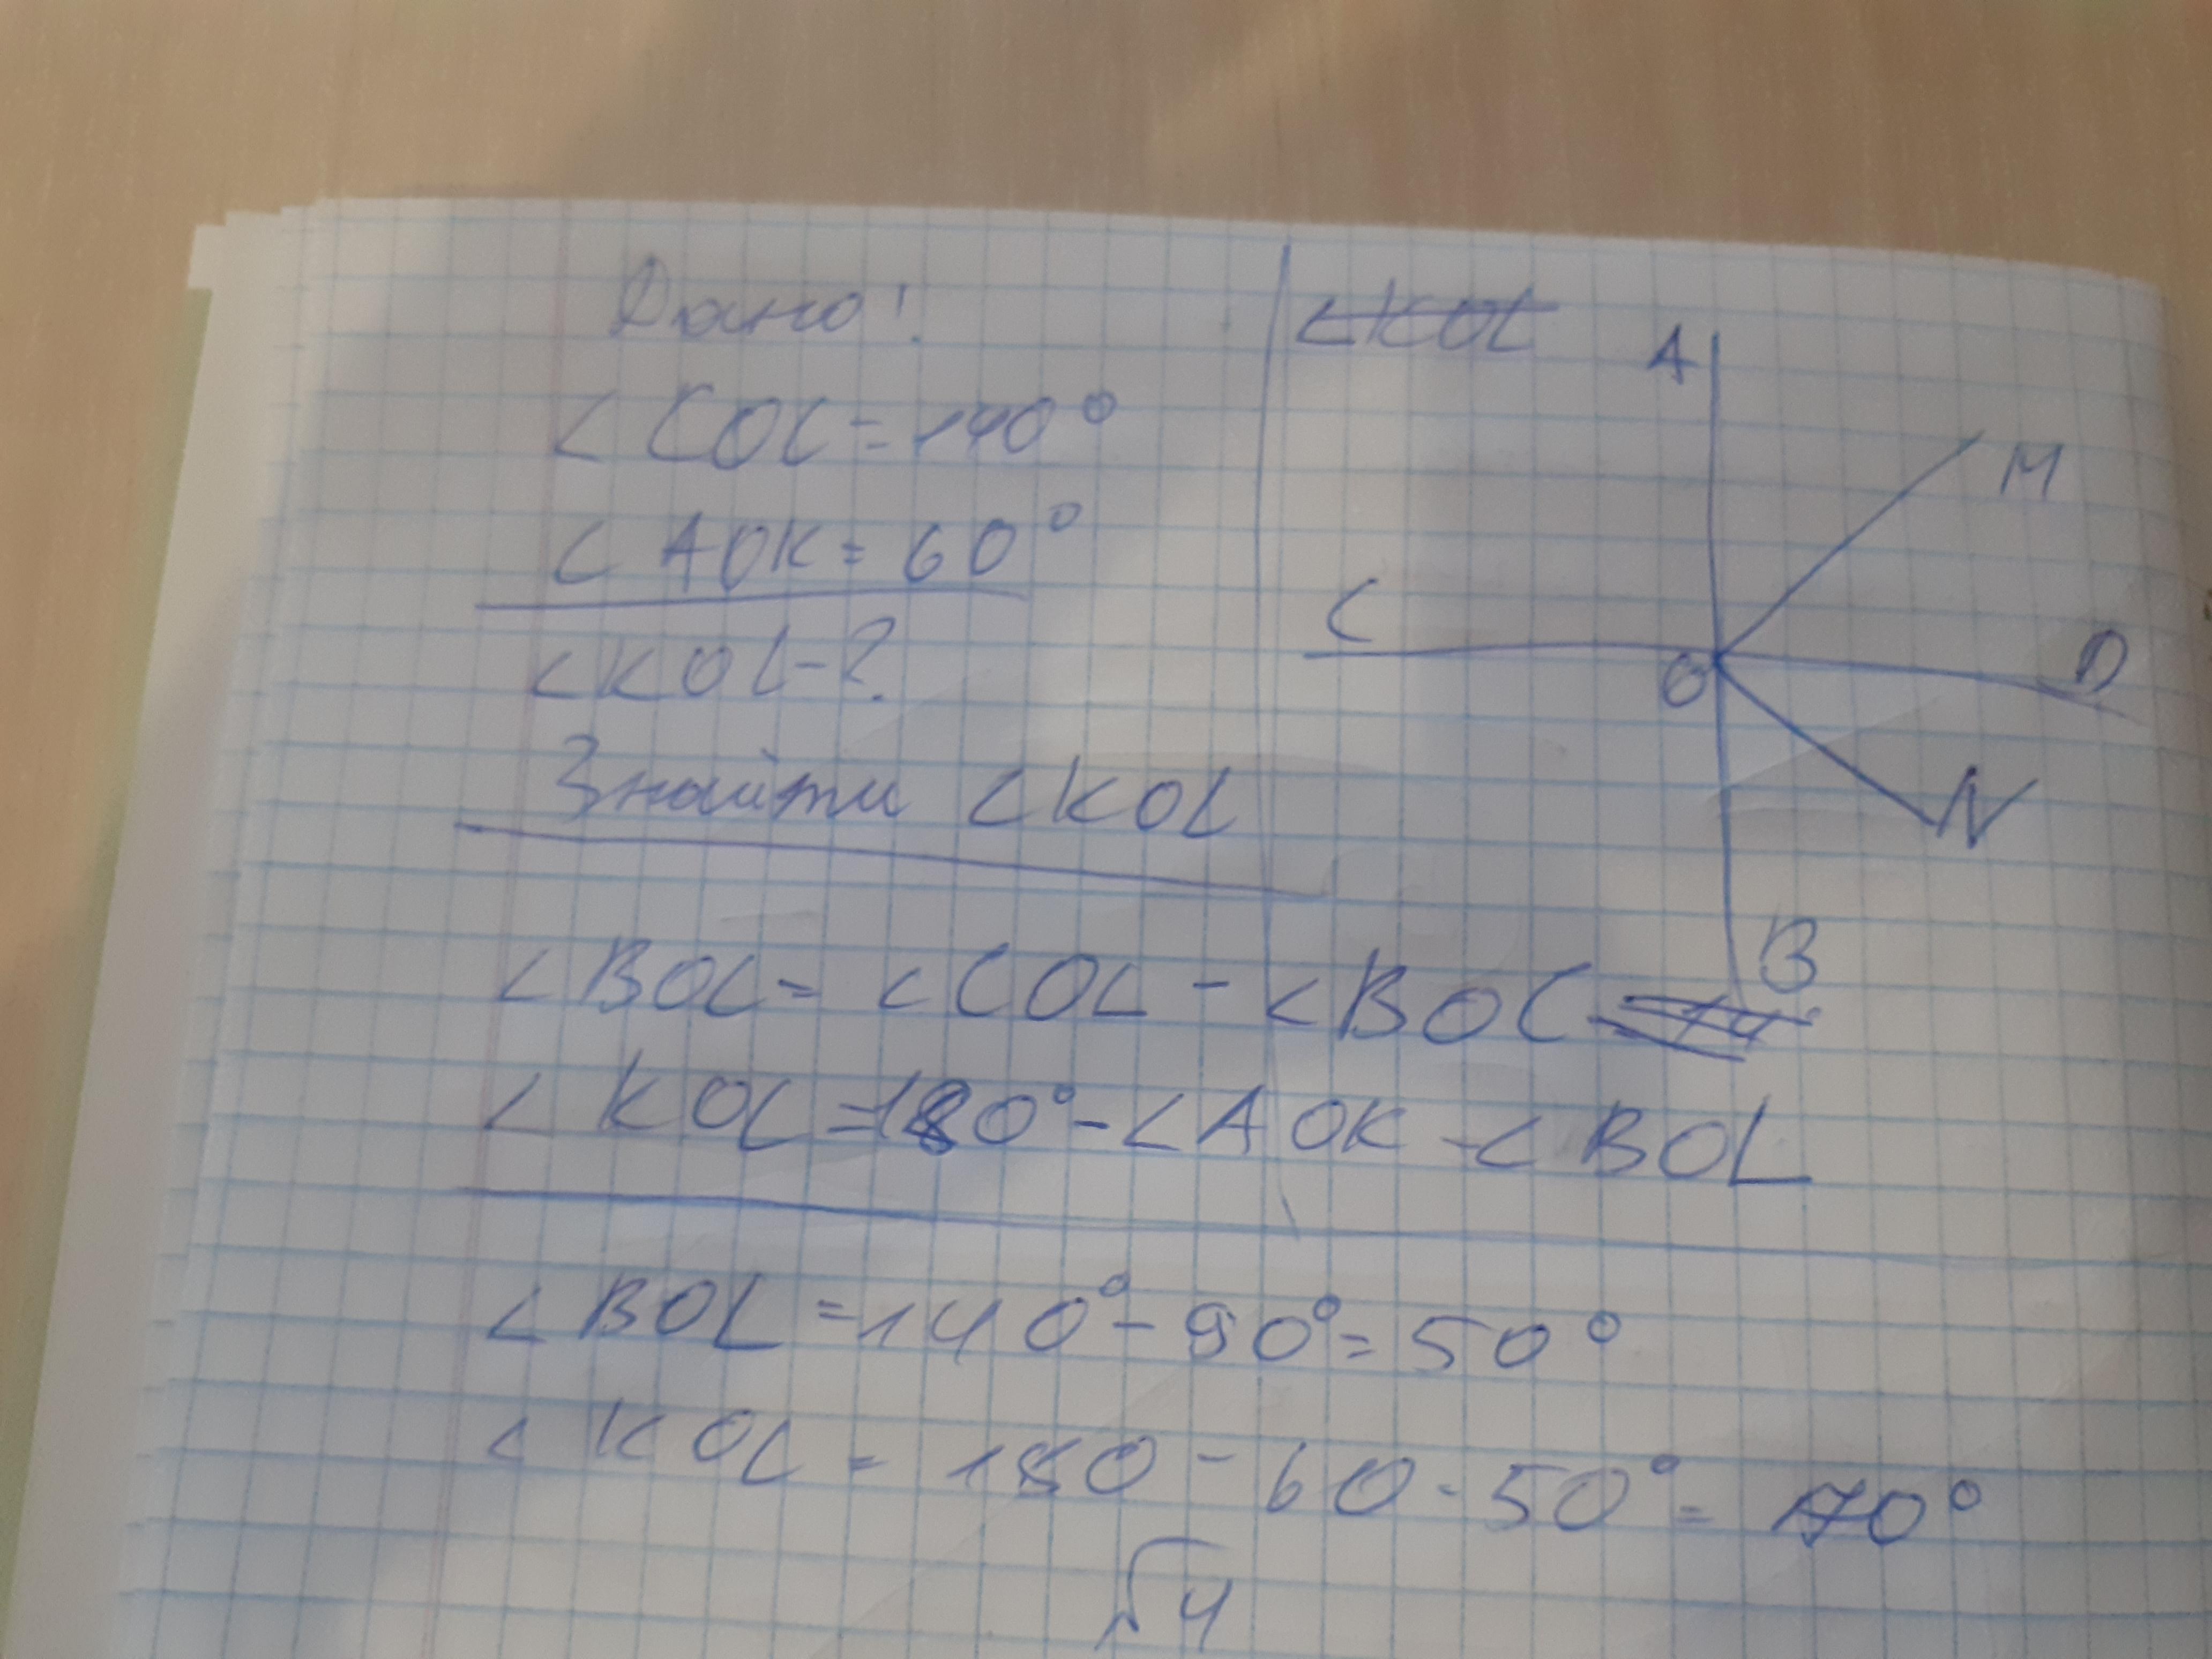 Дано:
∠COL = 140°
∠AOK = 60°
∠KOL - ?
Знайти ∠KOL
∠KOL
A
M
C
O
D
N
B
∠BOL = ∠COL - ∠BOC
∠KOL = 180° - ∠AOK - ∠BOL
∠BOL = 140° - 90° = 50°
∠KOL = 180 - 60 - 50° = 70°
√4